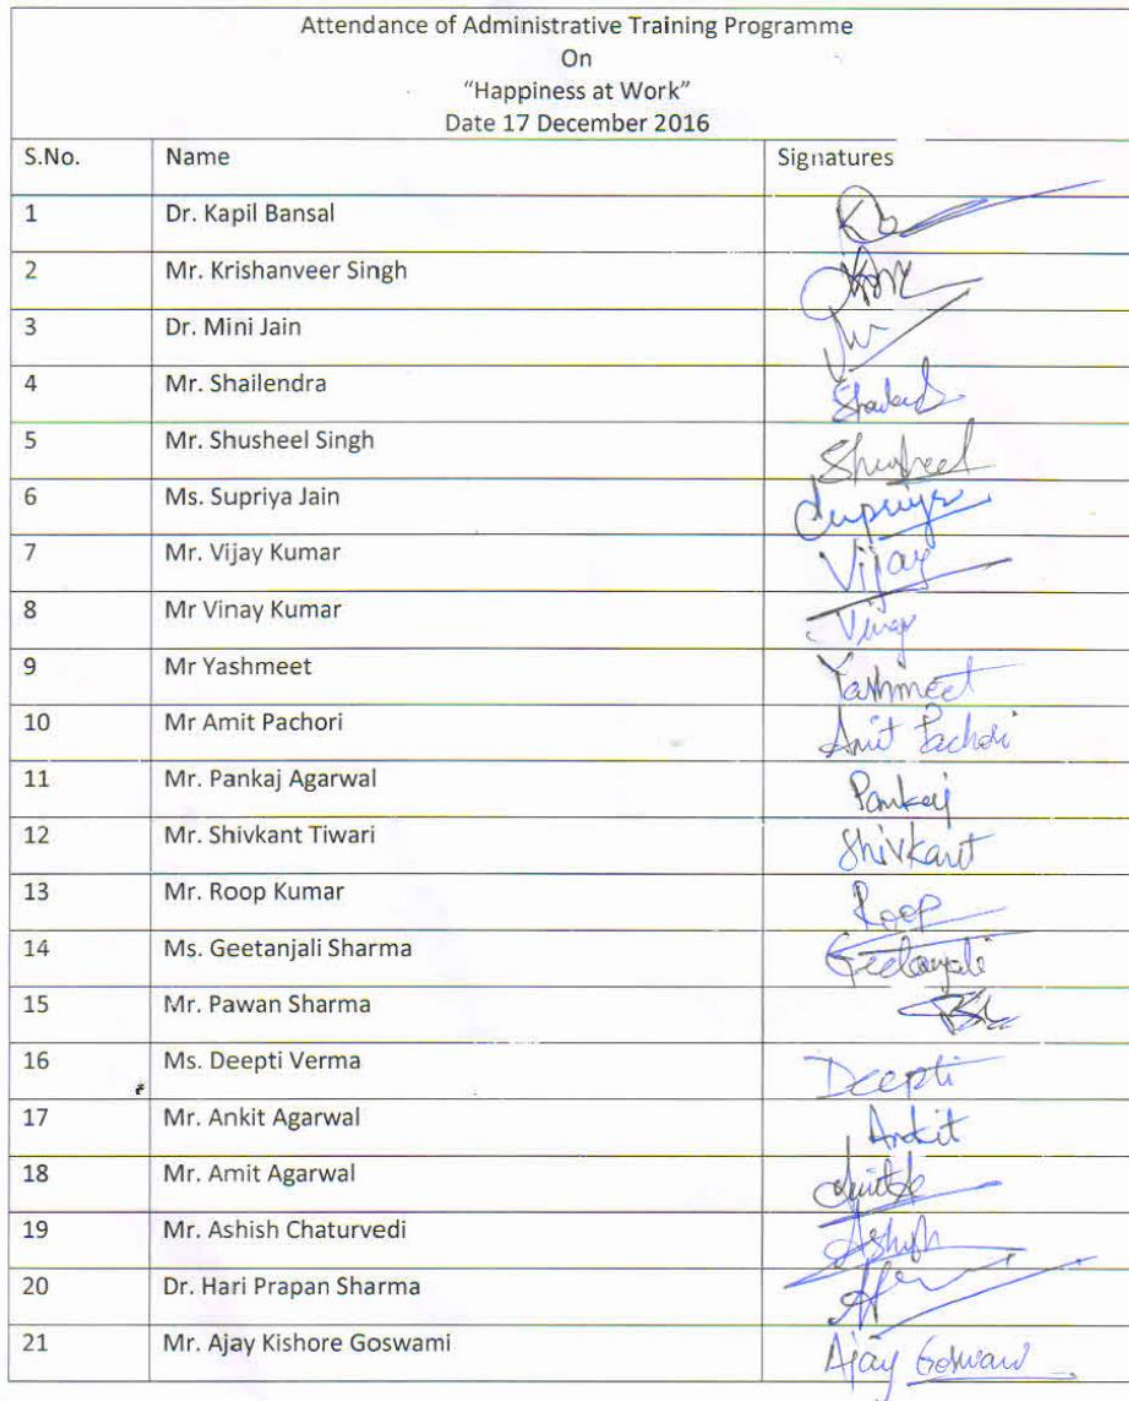 Attendance of Administrative Training Programme
On
“Happiness at Work”
Date 17 December 2016
S.No. Name Signatures
1 Dr. Kapil Bansal
2 Mr. Krishanveer Singh
3 Dr. Mini Jain
4 Mr. Shailendra
5 Mr. Shusheel Singh Shusheel
6 Ms. Supriya Jain Supriya
7 Mr. Vijay Kumar Vijay
8 Mr Vinay Kumar Vinay
9 Mr Yashmeet Yashmeet
10 Mr Amit Pachori Amit Pachori
11 Mr. Pankaj Agarwal Pankaj
12 Mr. Shivkant Tiwari Shivkant
13 Mr. Roop Kumar Roop
14 Ms. Geetanjali Sharma Geetanjali
15 Mr. Pawan Sharma
16 Ms. Deepti Verma Deepti
17 Mr. Ankit Agarwal Ankit
18 Mr. Amit Agarwal
19 Mr. Ashish Chaturvedi
20 Dr. Hari Prapan Sharma
21 Mr. Ajay Kishore Goswami Ajay Goswami